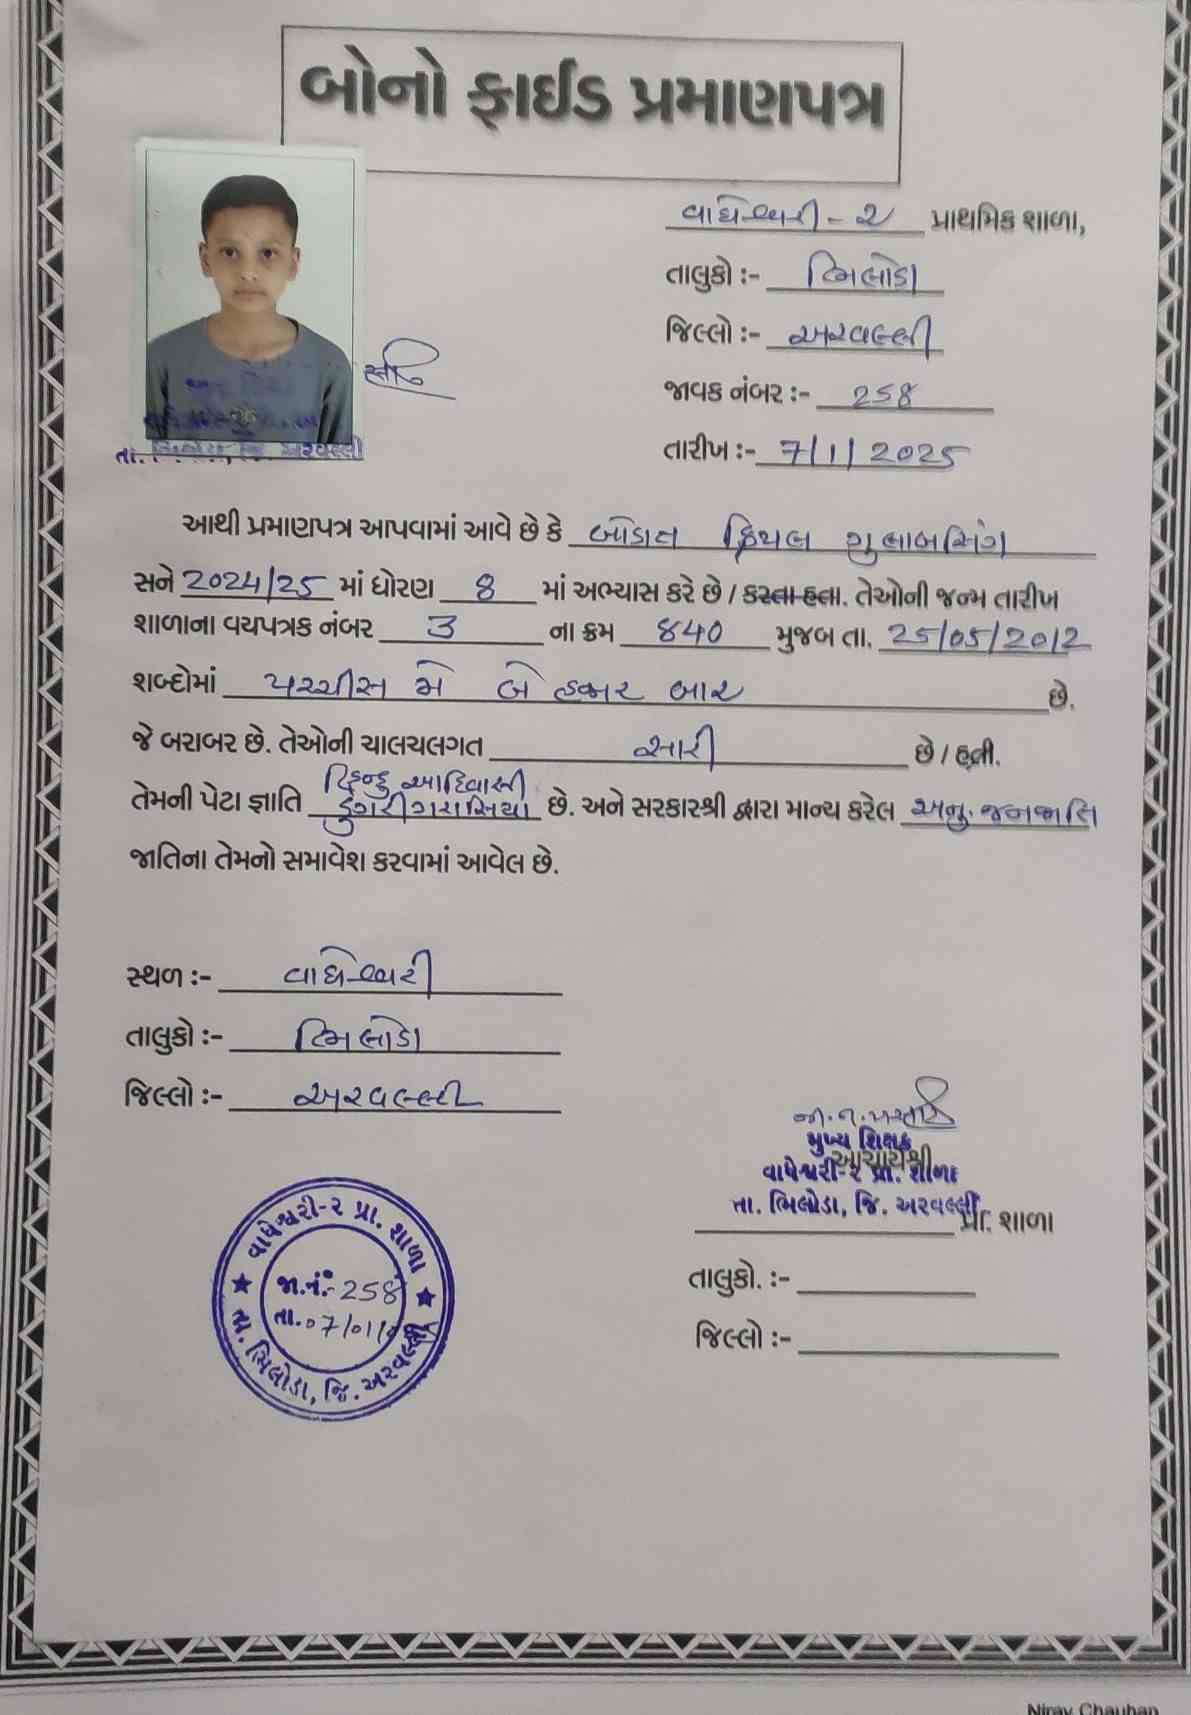 બોનો ફાઈડ પ્રમાણપત્ર
વાઘેશ્વરી - ૨ પ્રાથમિક શાળા,
તાલુકો :- ભિલોડા
જિલ્લો :- અરવલ્લી
જાવક નંબર :- 258
તારીખ :- 7/1/2025
તા. જિ. અરવલ્લી
આથી પ્રમાણપત્ર આપવામાં આવે છે કે બોડાત પ્રિયલ ગુલાબસિંગ
સને 2024/25 માં ધોરણ 8 માં અભ્યાસ કરે છે / કરતા હતા. તેઓની જન્મ તારીખ
શાળાના વયપત્રક નંબર 3 ના ક્રમ ૪40 મુજબ તા. 25/05/2012
શબ્દોમાં પચ્ચીસ મે બે હજાર બાર છે.
જે બરાબર છે. તેઓની ચાલચલગત સારી છે / હતી.
હિન્દુ આદિવાસી
તેમની પેટા જ્ઞાતિ ડુંગરીગરાસિયા છે. અને સરકારશ્રી દ્વારા માન્ય કરેલ અનુ. જનજાતિ
જાતિના તેમનો સમાવેશ કરવામાં આવેલ છે.
સ્થળ :- વાઘેશ્વરી
તાલુકો :- ભિલોડા
જિલ્લો :- અરવલ્લી
મુખ્ય શિક્ષક
આચાર્યશ્રી
વાઘેશ્વરી-૨ પ્રા. શાળા
તા. ભિલોડા, જિ. અરવલ્લી
પ્રા. શાળા
તાલુકો. :-
જિલ્લો :-
વાઘેશ્વરી-૨ પ્રા. શાળા
જા.નં.- 258
તા. 07/01/
તા. ભિલોડા, જિ. અરવલ્લી
Nirav Chauhan